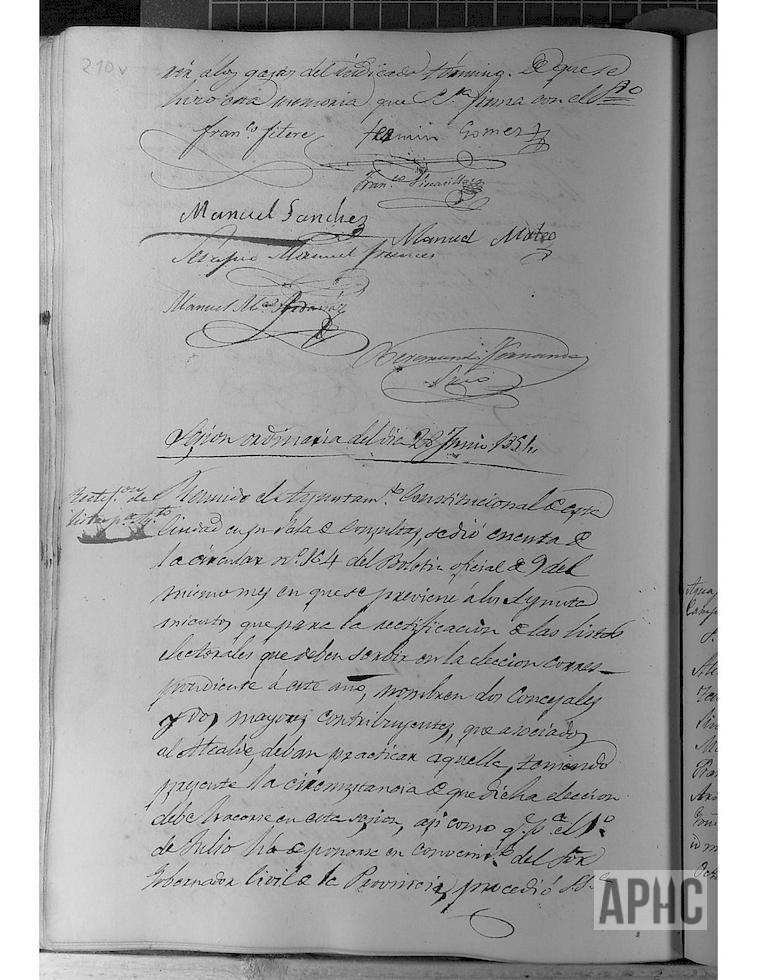 210v
rir a los gazas del indicado término. De que se
hizo esta memoria que S.ª firma con el Srio
Fran.co Jitere Fermin Gomez
Fran.co
Manuel Sanchez
Manuel Mateo
Manuel Frances
Manuel M.ª Ardanáz
Fernando
Srio
Sesion ordinaria del dia 22 Junio 1854.
Rectif.on de
listas p.ª Ay.to
Reunido el Ayuntam.to Constitucional de esta
Ciudad en su Sala de Consultas, se dió cuenta de
la circular n.º 164 del Boletin oficial de 9 del
mismo mes en que se previene á los Ayunta
mientos que para la rectificacion de las listas
electorales que deben servir en la eleccion corres-
pondiente á este año, nombren dos Concejales
y dos mayores contribuyentes, que asociados
al Alcalde, deban practicar aquella, teniendo
presente la circunstancia de que dicha eleccion
debe hacerse en esta sesion, asi como q.e p.ª el 1.º
de Julio há de ponerse en conocim.to del Sor
Gobernador Civil de la Provincia, procedió S.S.ª
APHC